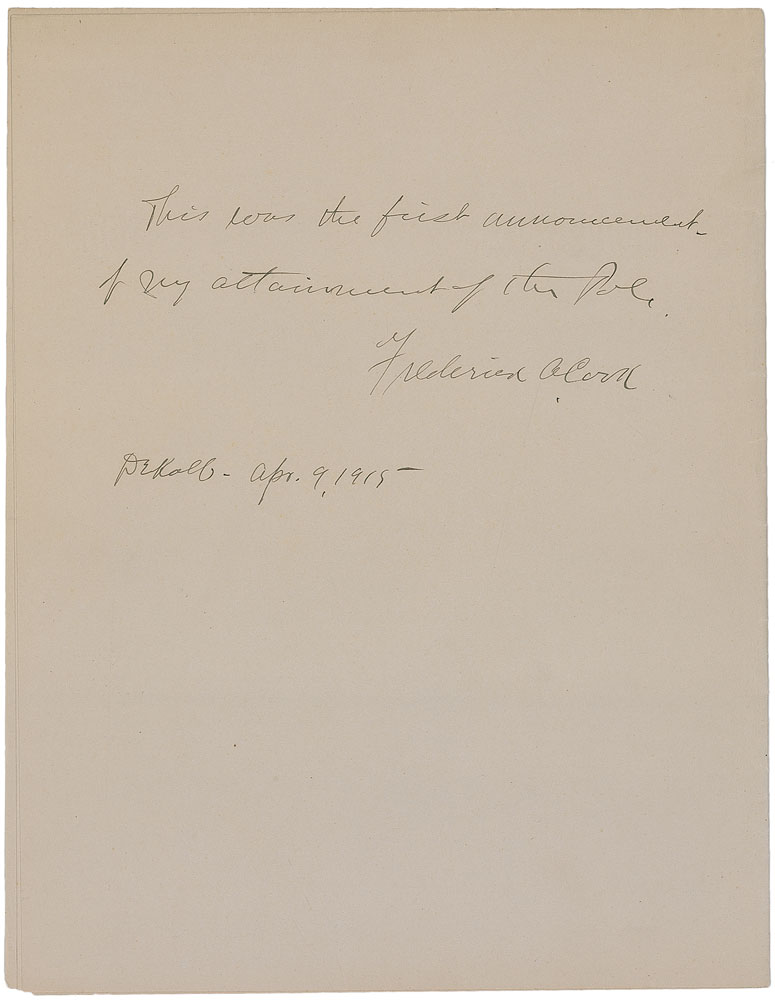 This was the first announcement
of my attainment of the Pole.
Frederick A Cook
DeKalb - Apr. 9, 1915 -